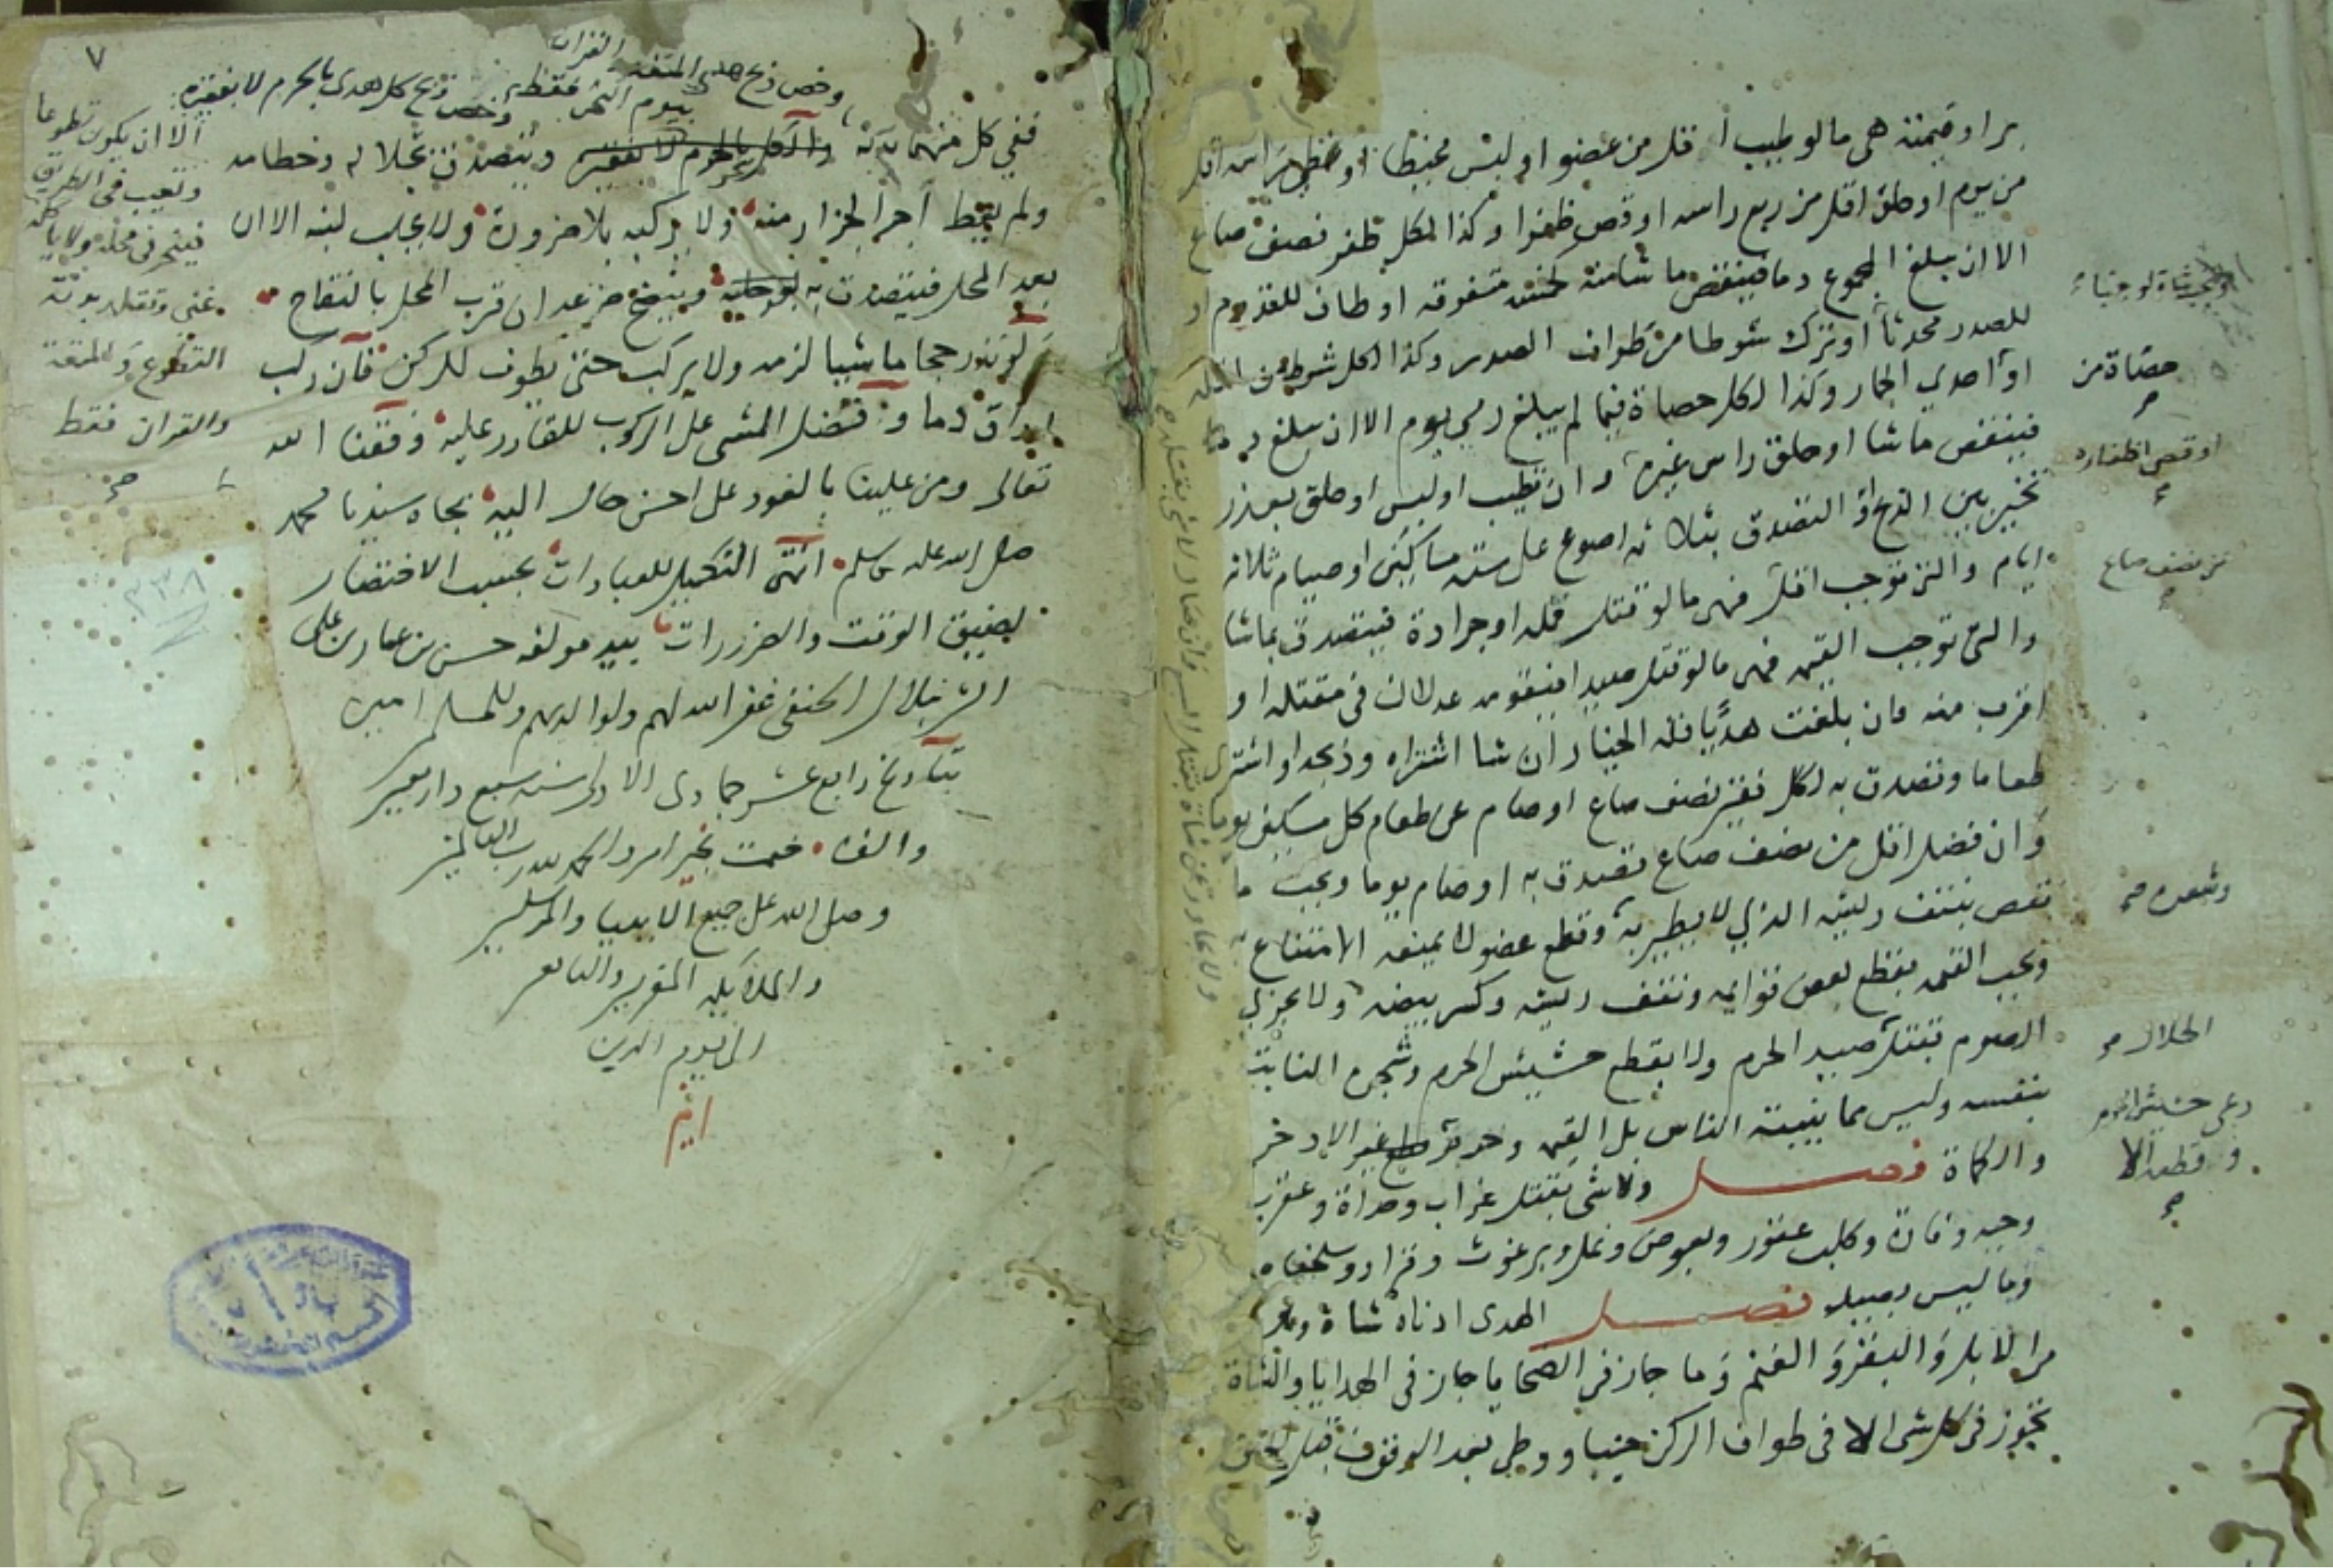 بر او قيمته هي ما لو طيب أقل من عضو او لبس مخيطا او غطى راسه اقل
من يوم او حلق اقل من ربع راسه او قص ظفرا وكذا لكل ظفر نصف صاع
الا ان يبلغ المجموع دما فينقص ما شا منه كخمسة متفرقة او طاف للقدوم او
للصدر محدثا او ترك شوطا من طواف الصدر وكذا لكل شوط من اقله
او احدي الجمار وكذا لكل حصاة فيما لم يبلغ رمي يوم الا ان يبلغ دما
فينقص ما شا او حلق راس غيره وان تطيب او لبس او حلق بعذر
تخير بين الذبح او التصدق بثلاثه اصوع على ستة مساكين او صيام ثلاثه
ايام والتى توجب اقل فهى ما لو قتل قمله او جرادة فيتصدق بما شا
والتى توجب القيمه فهى ما لو قتل صيدا فيقومه عدلان في مقتله او
اقرب منه فان بلغت هديًا فله الخيار ان شا اشتراه وذبحه او اشترى
طعاما وتصدق به لكل فقير نصف صاع او صام عن طعام كل مسكين يوما
وان فضل اقل من نصف صاع تصدق به او صام يوما وتجب ما
نقص بنتف ريشه الذي لا يطير به وقطع عضو لا يمنعه الامتناع به
وتجب القيمه بقطع بعض قوايمه ونتف ريشه وكسر بيضه ولا يجزي
الصوم بقتل صيد الحرم ولا بقطع حشيش الحرم وشجره النابت
بنفسه وليس مما ينبته الناس بل القيمه وحرم غير الاذخر
والكماة فصل ولا شى بقتل غراب وحداة وعقرب
وحيه وفارة وكلب عقور وبعوض ونمل وبرغوث وقراد وسلحفاه
وما ليس بصيد فصل الهدى ادناه شاة وهو
من الابل والبقر والغنم وما جاز في الضحايا جاز في الهدايا والشاة
تجوز في كل شى الا في طواف الركن جنبا ووطى بعد الوقوف قبل الحلق
حصاة من
او قص اظفاره
نصف صاع
وشعره صح
الحلال
رعى حشيش الحرم
وقطعه الا
٧
وخص ذبح هدى المتعه والقران
بيوم النحر فقط وخص ذبح كل هدى بالحرم لا بفقيره
الا ان يكون تطوعا
وتعيب في الطريق
فينحر في محله ولا ياكله
غنى وتقلد بدنة
التطوع والمتعة
والقران فقط
صح
ففي كل منهما بدنة والكل بالحرم لا بفقيره ويتصدق بجلاله وخطامه
ولم يعط اجر الجزار منه ولا يركبه بلا ضرورة ولا يحلب لبنه الا ان
بعد المحل فيتصدق به وينضح ضرعه ان قرب المحل بالنقاخ
لو نذر حجا ماشيا لزمه ولا يركب حتى يطوف للركن فان ركب
اراق دما وفضل المشى على الركوب للقادر عليه وفقنا الله
تعالى ومن علينا بالعود على احسن حال اليه بجاه سيدنا محمد
صلى الله عليه وسلم انتهى التكميل للعبادات بحسب الاختصار
بضيق الوقت والضرورات بيد مولفه حسن بن عمار بن على
الشرنبلالى الحنفى غفر الله لهم ولوالديهم وللمسلمين امين
بتاريخ رابع عشر جمادى الاولى سنه سبع واربعين
والف ختمت بخير امر والحمد لله رب العالمين
وصلى الله على جميع الانبيا والمرسلين
والملائكه المقربين والتابعين
الى يوم الدين
٣٣٨